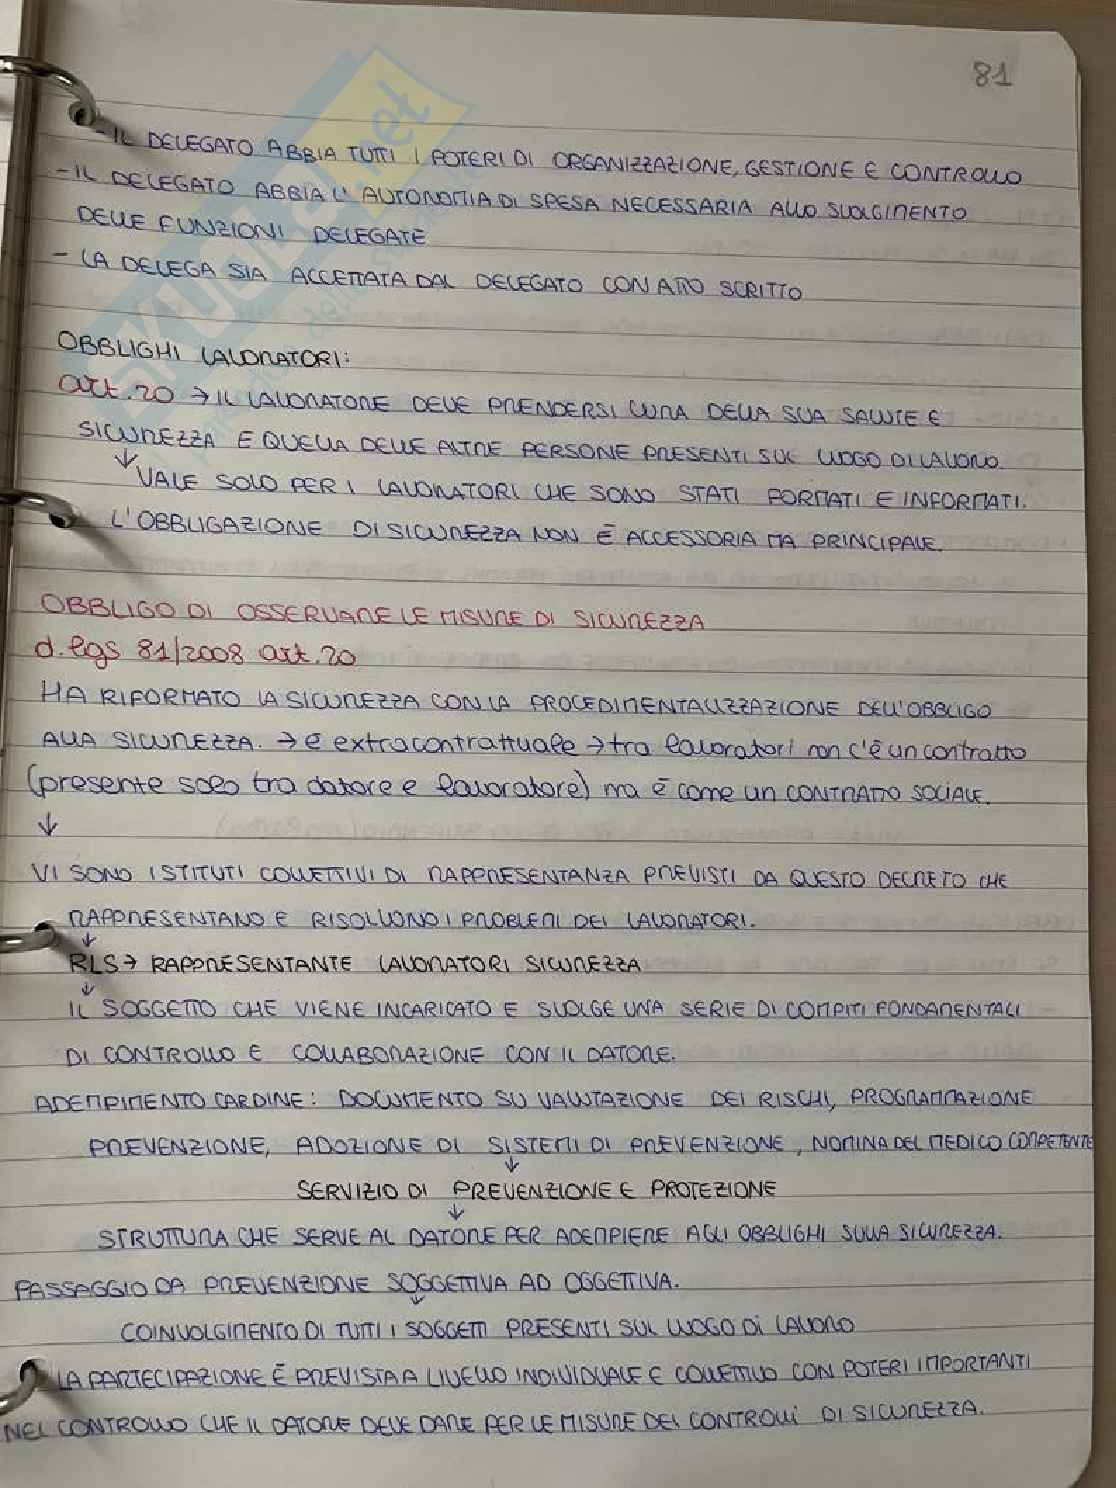 81
- IL DELEGATO ABBIA TUTTI I POTERI DI ORGANIZZAZIONE, GESTIONE E CONTROLLO
- IL DELEGATO ABBIA L'AUTONOMIA DI SPESA NECESSARIA ALLO SVOLGIMENTO
DELLE FUNZIONI DELEGATE
- LA DELEGA SIA ACCETTATA DAL DELEGATO CON ATTO SCRITTO
OBBLIGHI LAVORATORI:
art. 20 → IL LAVORATORE DEVE PRENDERSI CURA DELLA SUA SALUTE E
SICUREZZA E QUELLA DELLE ALTRE PERSONE PRESENTI SUL LUOGO DI LAVORO.
↓ VALE SOLO PER I LAVORATORI CHE SONO STATI FORMATI E INFORMATI.
L'OBBLIGAZIONE DI SICUREZZA NON È ACCESSORIA MA PRINCIPALE.
OBBLIGO DI OSSERVARE LE MISURE DI SICUREZZA
d.lgs 81/2008 art. 20
HA RIFORMATO LA SICUREZZA CON LA PROCEDIMENTALIZZAZIONE DELL'OBBLIGO
ALLA SICUREZZA. → è extracontrattuale → tra lavoratori non c'è un contratto
(presente solo tra datore e lavoratore) ma è come un CONTRATTO SOCIALE.
↓
VI SONO ISTITUTI COLLETTIVI DI RAPPRESENTANZA PREVISTI DA QUESTO DECRETO CHE
RAPPRESENTANO E RISOLVONO I PROBLEMI DEI LAVORATORI.
↓
RLS → RAPPRESENTANTE LAVORATORI SICUREZZA
↓
IL SOGGETTO CHE VIENE INCARICATO E SVOLGE UNA SERIE DI COMPITI FONDAMENTALI
DI CONTROLLO E COLLABORAZIONE CON IL DATORE.
ADEMPIMENTO CARDINE: DOCUMENTO SU VALUTAZIONE DEI RISCHI, PROGRAMMAZIONE
PREVENZIONE, ADOZIONE DI SISTEMI DI PREVENZIONE, NOMINA DEL MEDICO COMPETENTE
↓
SERVIZIO DI PREVENZIONE E PROTEZIONE
↓
STRUTTURA CHE SERVE AL DATORE PER ADEMPIERE AGLI OBBLIGHI SULLA SICUREZZA.
PASSAGGIO DA PREVENZIONE SOGGETTIVA AD OGGETTIVA.
↓
COINVOLGIMENTO DI TUTTI I SOGGETTI PRESENTI SUL LUOGO DI LAVORO
LA PARTECIPAZIONE È PREVISTA A LIVELLO INDIVIDUALE E COLLETTIVO CON POTERI IMPORTANTI
NEL CONTROLLO CHE IL DATORE DEVE DARE PER LE MISURE DEI CONTROLLI DI SICUREZZA.